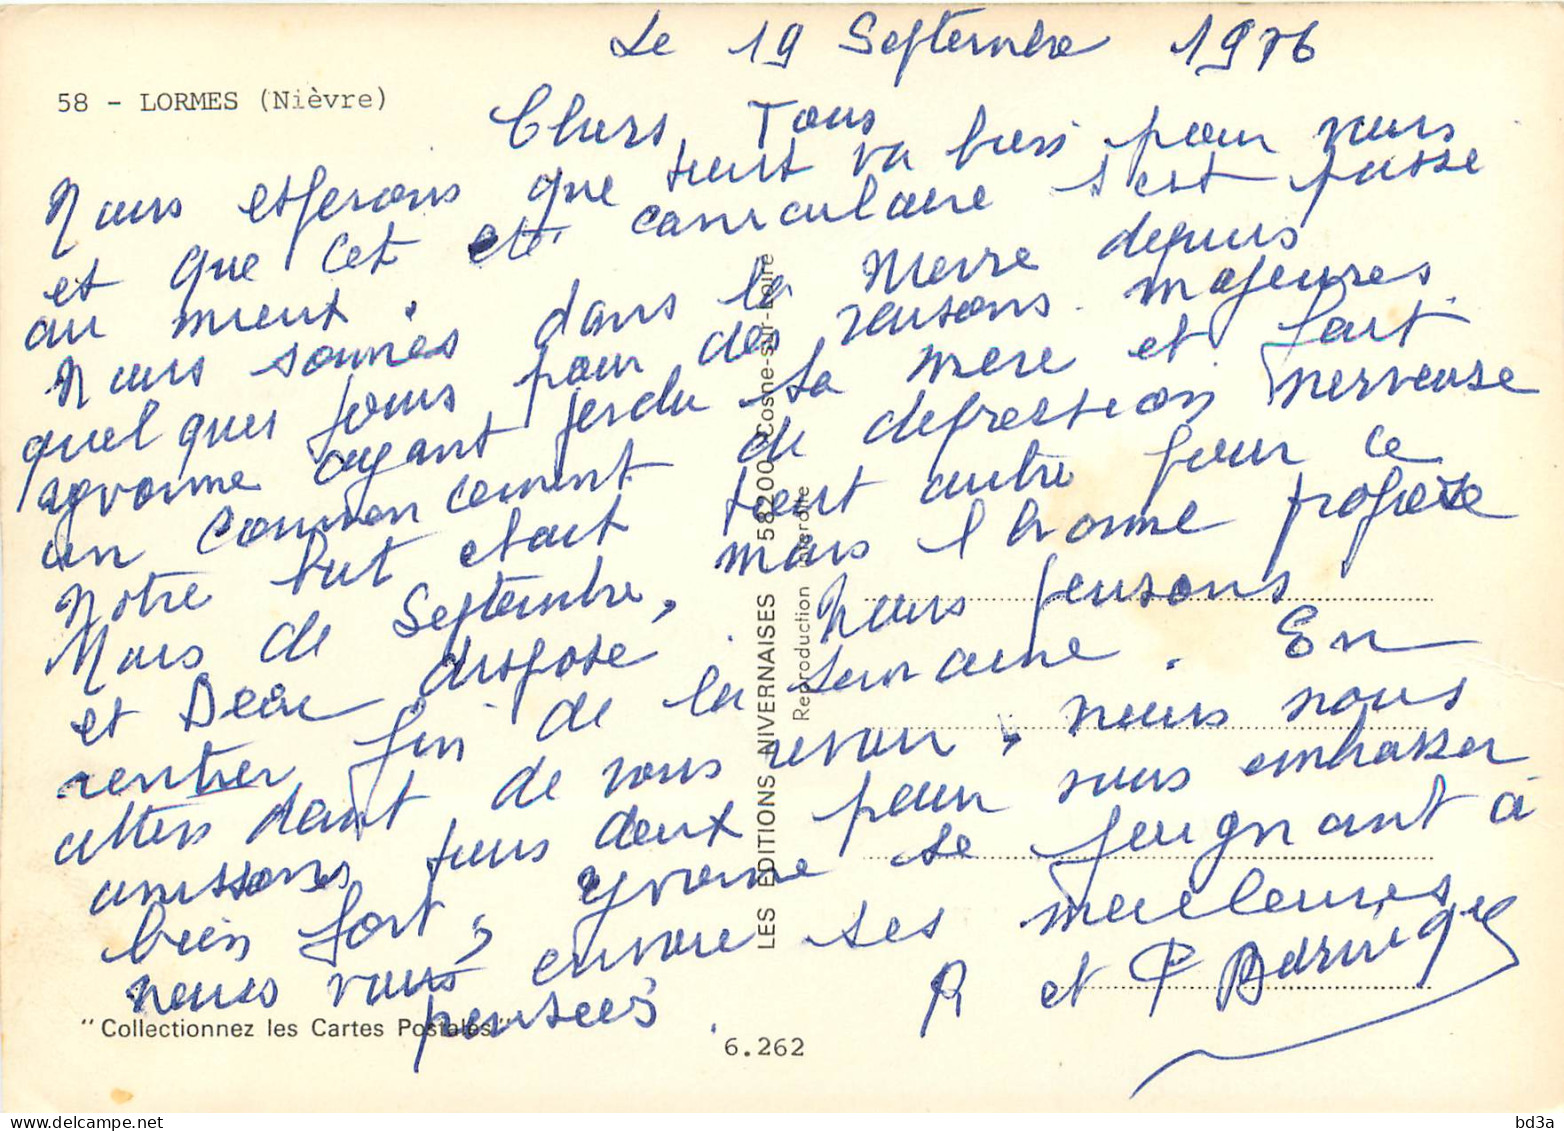 Le 19 Septembre 1976
58 - LORMES (Nièvre)
Chers Tous
Nous esperons que tout va bien pour vous
et que cet eté caniculaire s'est passe
au mieux.
Nous sommes dans la Nievre depuis
quelques jours pour des raisons majeures.
Yvonne ayant perdu sa mere et fait
un commencement de depression nerveuse
Notre but etait tout autre pour ce
Mois de Septembre, mais l'homme propose
et Dieu dispose. Nous pensons
rentrer fin de la semaine. En
attendant de vous revoir, nous nous
unissons tous deux pour vous embrasser
bien fort, Yvonne se joignant à
nous vous envoie ses meilleures
pensées.
R et P
LES EDITIONS NIVERNAISES 58200 Cosne-sur-Loire
Reproduction interdite
"Collectionnez les Cartes Postales"
6.262
bd3a